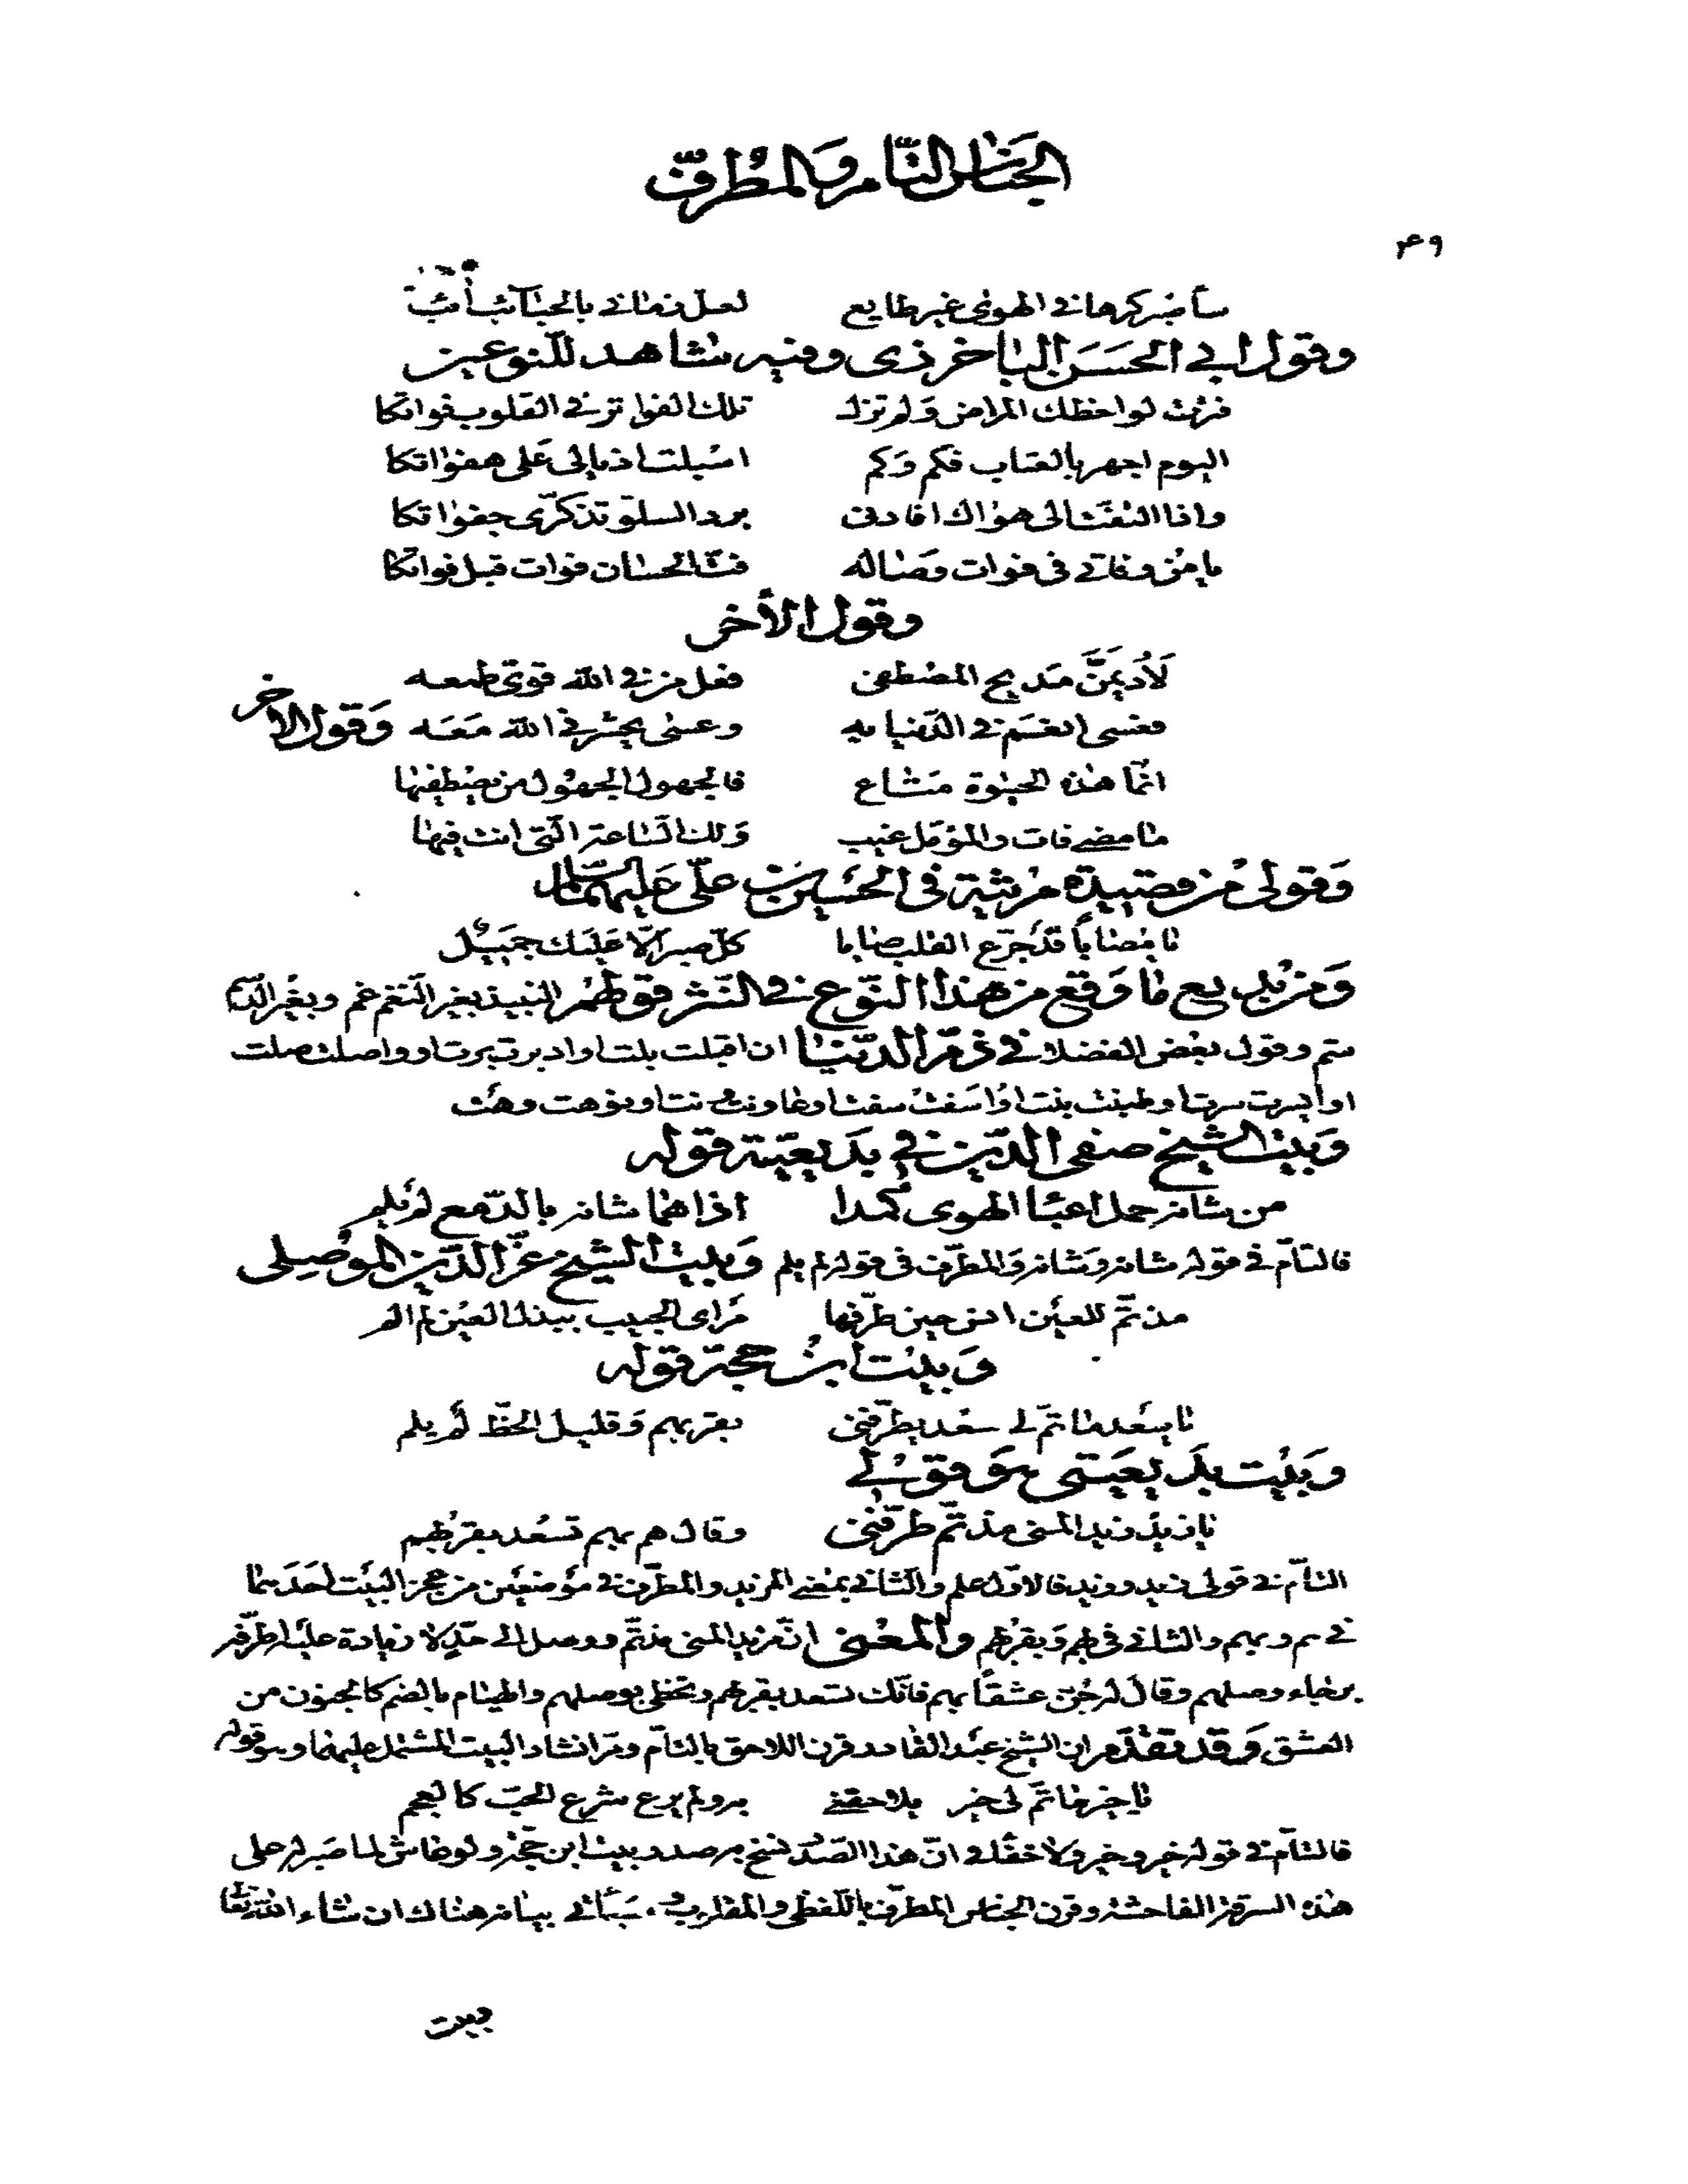 الجناس التام والمطرف
٤٩
سأصبر كرها في الهوى غير طايع لعل زماني بالحبائب
وقول ابي الحسن الباخرذى وفيه شاهد للنوعين
فرنت لواحظك المراض ولم تزل تلك الفواتر في القلوب فواتكا
اليوم اجهر بالعتاب فكم وكم اسبلت اذيالى على هفواتكا
واذا التفت الى هواك افادنى برد السلو تذكرى جفواتكا
يا من وفاتي في فوات وصاله فت الحسان فوات قبل فواتكا
وقول الأخر
لأديمن مديح المصطفى فعل من في الله قوى طمعه
فعسى انعم في الدنيا به وعسى يحشرني الله معه وقول الاخر
انما هذه الحيوة متاع فالجهول الجهول من يصطفيها
ما مضى فات والمؤمل غيب ولك الساعة التى انت فيها
وقولى من قصيدة مرثية في الحسين بن على عليهما السلام
يا مصابا قد جرع القلب صابا كل صبر الا عليك جميل
ومن بديع ما وقع من هذا النوع في النثر قولهم النبيذ بغير النغم غم وبغير الدسم
ستم وقول بعض الفضلا في ذم الدنيا ان اقبلت بلت او ادبرت برت او واصلت صلت
او ايسرت سرت او اطنبت نبت او اسفت سفت او عاونت ونت او نوهت وهت
وبيت الشيخ صفى الدين في بديعيته قوله
من شانه حمل اعبا الهوى كمدا اذا هما شانه بالدمع لم يلم
فالتام في قوله شانه وشانه والمطرف في قوله لم يلم وبيت الشيخ عز الدين الموصلى
مذ تم للعين انس حين طرفها مرأى الحبيب ببذل العين لم الم
وبيت ابن حجة قوله
يا سعد ما تم لي سعد يطرفنى بقربهم وقليل الحظ لم يلم
وبيت بديعيتى هو قولي
يا زيد زيد المنى مذ تم طرفنى وقال هم بهم تسعد بقربهم
التام في قولى زيد وزيد فالاول علم والثاني بمعنى المزيد والمطرف في موضعين من عجز البيت احدهما
في هم وبهم والثاني في بهم وبقربهم والمعنى ان مزيد المنى مذ تم ووصل الى حد لا زيادة عليه اطرفه
برخاء وصلهم وقال له جن عشقا بهم فانك تسعد بقربهم وتحظى بوصلهم والهيام بالضم كالجنون من
العشق وقد تقدم ان الشيخ عبد القادر قرن اللاحق بالتام ومر انشاد البيت المشتمل عليهما وهو قوله
يا خير ما تم لى خير يلاحقنى بدو لم يرع شرع الحب كالعجم
فالتام في قوله خير وخير ولا خفاء في ان هذا الصدر نسخ به صدر بيت ابن حجة ولو عاش لما صبر له على
هذه السرقة الفاحشة وقرن الجناس المطرف باللفظى والمقلوب وسيأتي بيانه هناك ان شاء الله تعالى
وبيت